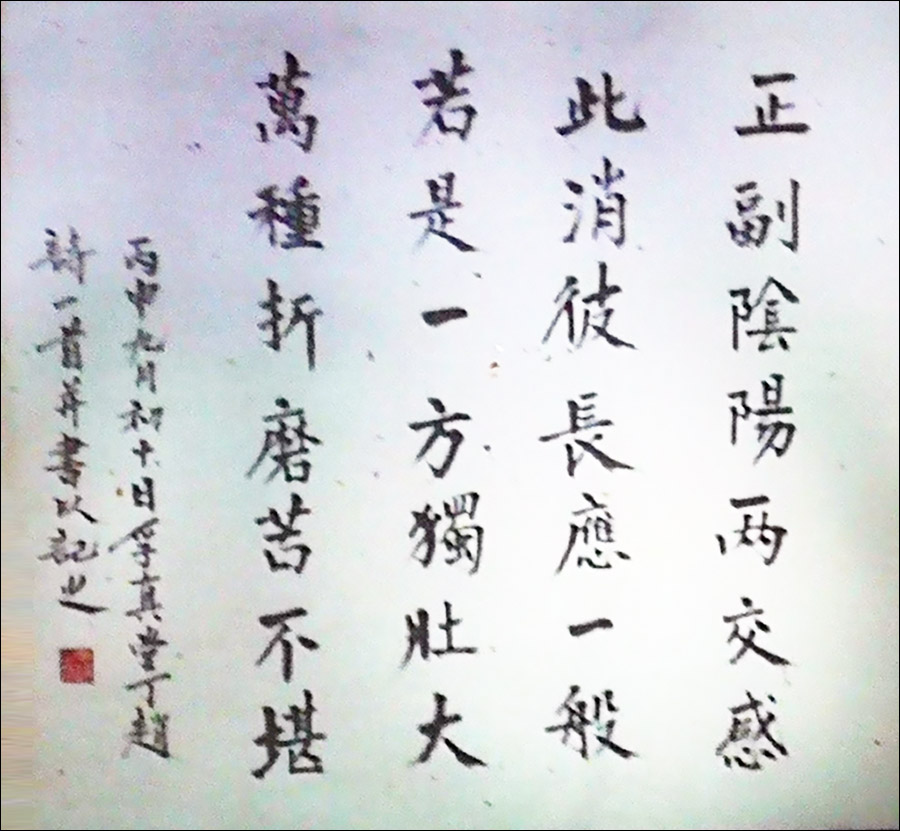 正副陰陽两交感
此消彼長應一般
若是一方獨壯大
萬種折磨苦不堪
丙申九月初十日真堂丁趙
詩一首并書以記之